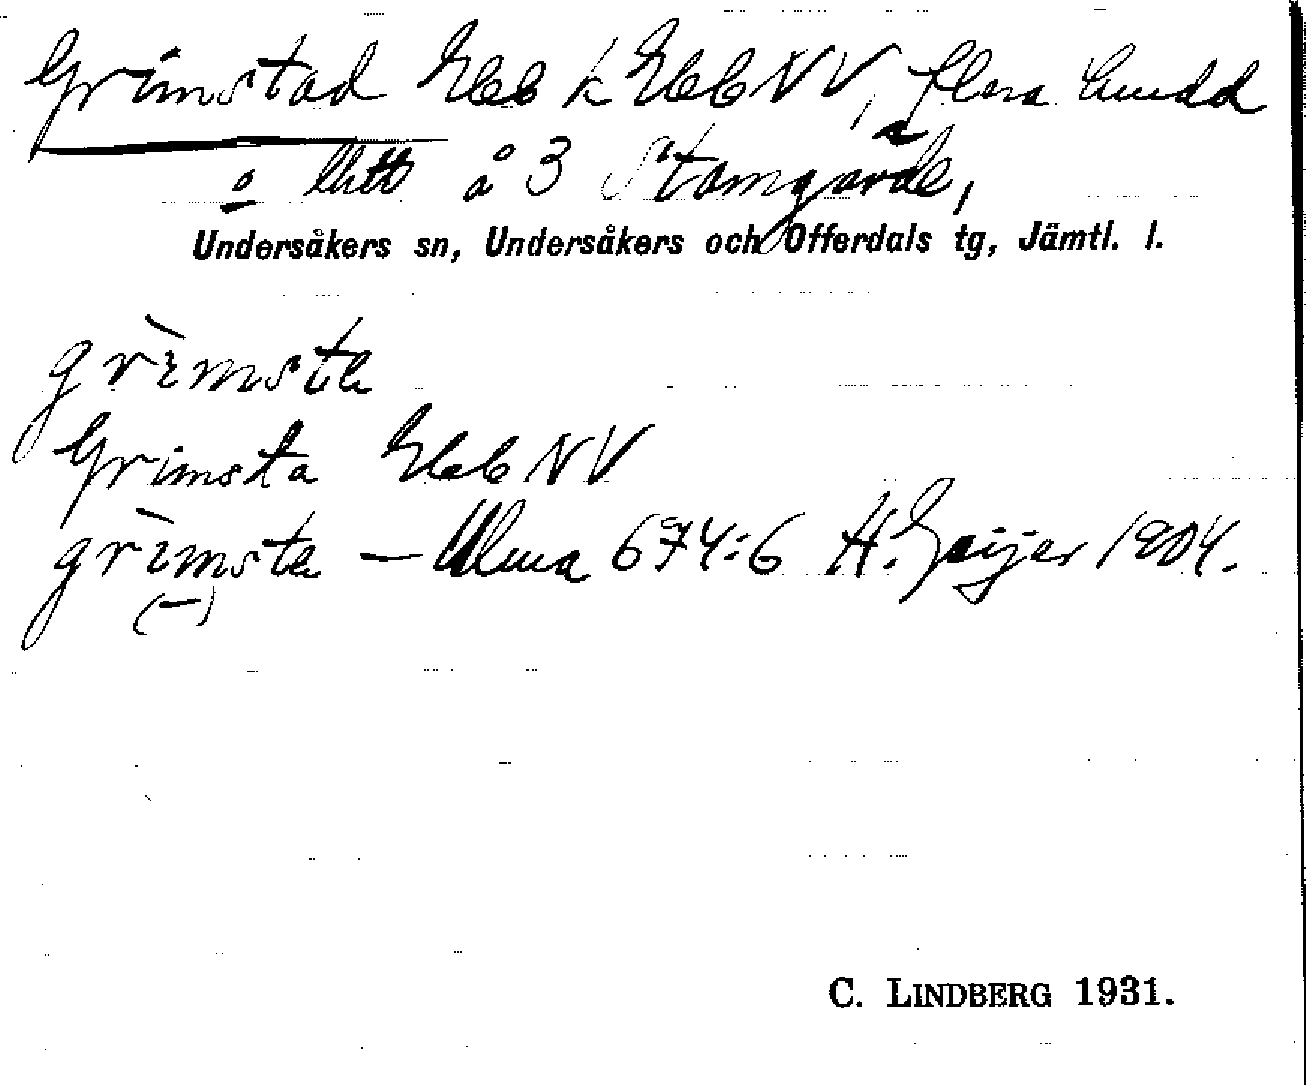 Grimstad Ekb k Ekb NV, flera hmdd
o litt å 3 Stamgårde,
Undersåkers sn, Undersåkers och Offerdals tg, Jämtl. l.
grı̀msta
Grimsta Ekb NV
grı̀msta — Ulma 674:6 H. Geijer 1904.
(—)
C. LINDBERG 1931.